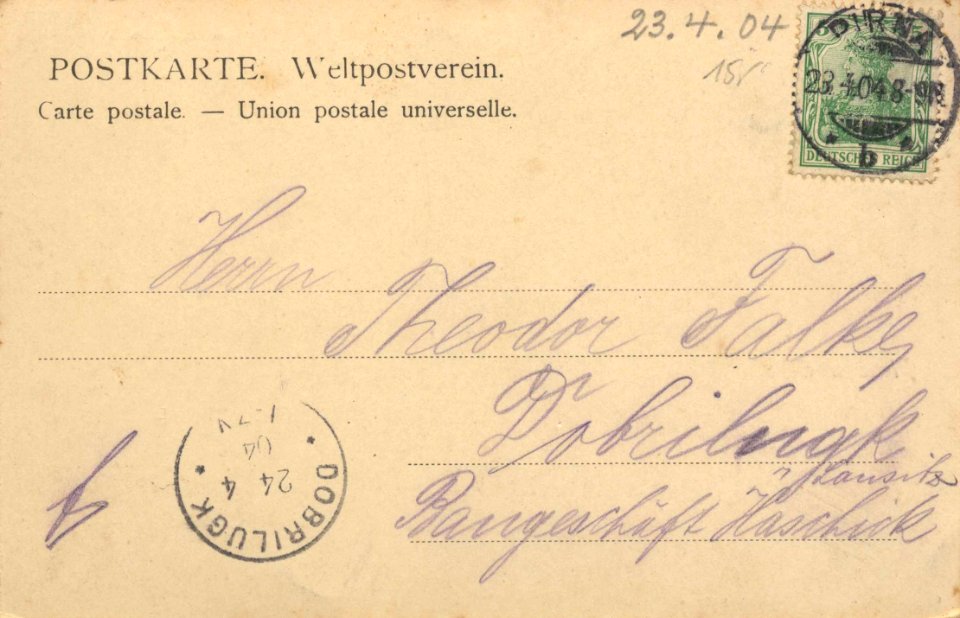 23.4.04
15,-
POSTKARTE. Weltpostverein.
Carte postale. — Union postale universelle.
PIRNA
23.4.04 8-9N
b
DEUTSCHES REICH
Herrn
Theodor Falke,
Dobrilugk
Lausitz
Baugeschäft Häschick
DOBRILUGK
24 4
04